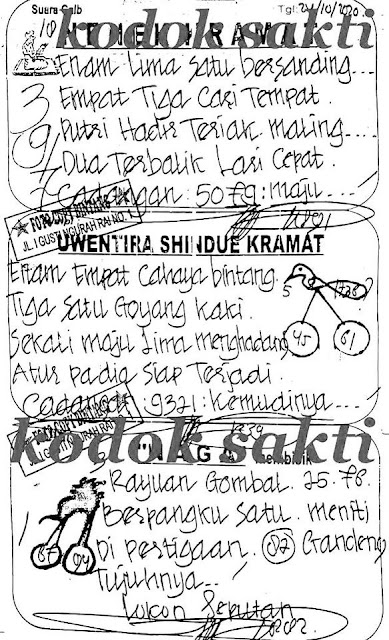 Suara Galb Tgl: 24/10/2020
kodok sakti
Enam Lima satu bersanding....
3 Empat Tiga Cari Tempat.
9 Putri Hadir Teriak maling....
7 Dua Terbalik Lari Cepat.
7 Cadangan 5079: maju...
FOTO COPY BINTANG
JL. I GUSTI NGURAH RAI NO. 1
UWENTIRA SHINDUE KRAMAT
Enam Empat Cahaya bintang.
5
Tiga Satu Goyang kaki.
45 61
Sekali maju Lima menghadang
Atur padia Siap Terjadi.
Cadangan: 9321: Kemudinya....
FOTO COPY BINTANG
JL. I GUSTI NGURAH RAI
kodok sakti
"NAGA" membisik
Rayuan Gombal. 25.78.
Berpangku Satu. meniti
87 94
Di pertigaan. 82 Grandeng
Tujuhnya...
Lukon Seputan